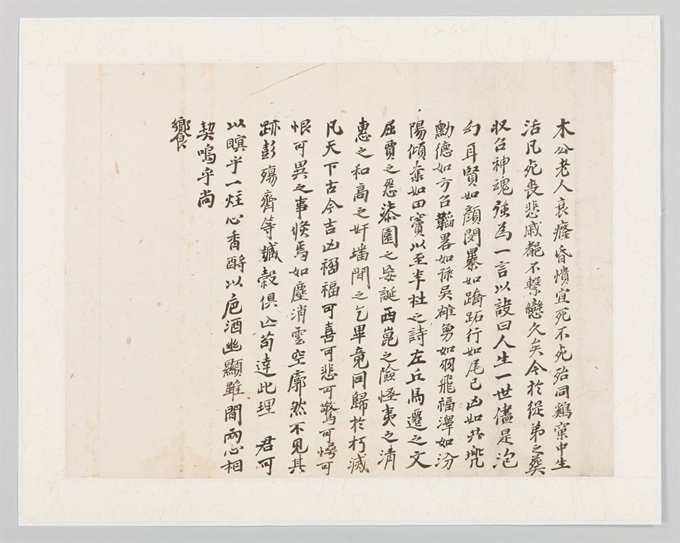 木公老人衰癃昏憒宜死不死殆同鷄窠中生
活凡死喪悲戚絶不繫戀久矣今於從弟之葬
収召神魂強為一言以設曰人生一世儘是泡
幻耳賢如顔閔暴如蹻跖行如尾己凶如共兜
勳德如方召韜畧如孫吳雄勇如羽飛福澤如汾
陽傾奪如田竇以至李杜之詩左丘馬遷之文
屈賈之怨漆園之妄誕西崑之險怪夷之清
惠之和高之奸墦間之乞畢竟同歸於朽滅
凡天下古今吉凶禍福可喜可悲可驚可愕可
恨可異之事倏焉如塵消雲空廓然不見其
跡彭殤齊等臧穀俱亡苟達此理 君可
以瞑乎一炷心香酹以巵酒幽顯雖間兩心相
契嗚乎尚
饗